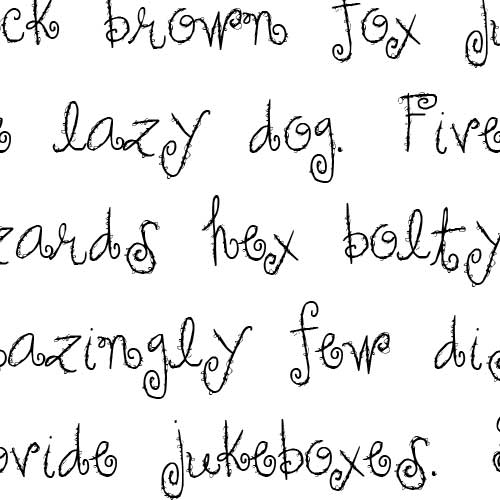 ck brown fox ju
lazy dog. Five
zards hex bolty
azingly few dis
ovide jukeboxes.